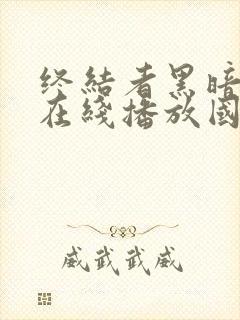 终結者黑暗
在綫播放國
威武武威